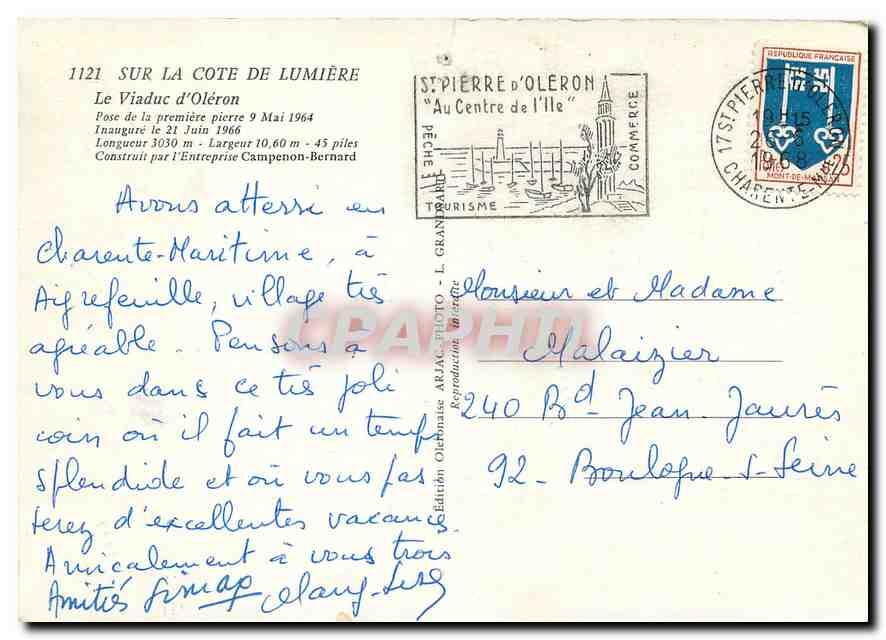 1121 SUR LA COTE DE LUMIÈRE
Le Viaduc d'Oléron
Pose de la première pierre 9 Mai 1964
Inauguré le 21 Juin 1966
Longueur 3030 m - Largeur 10,60 m - 45 piles
Construit par l'Entreprise Campenon-Bernard
Avons atterri en
Charente-Maritime, à
Aigrefeuille, village très
agréable. Pensons à
vous dans ce très joli
coin où il fait un temps
splendide et où vous pas
serez d'excellentes vacances.
Amicalement à vous trois
Amitiés
Édition Oléronaise ARJAC-PHOTO - L. GRANDSARD
Reproduction interdite
CPAPHIL
ST PIERRE D'OLÉRON
"Au Centre de l'Ile"
PÊCHE
COMMERCE
TOURISME
17 ST PIERRE D'OLERON
19H15
1968
CHARENTE-MME
REPUBLIQUE FRANÇAISE
MONT-DE-MARSAN
Monsieur et Madame
Malaizier
240 Bd Jean Jaurès
92 - Boulogne-s-Seine